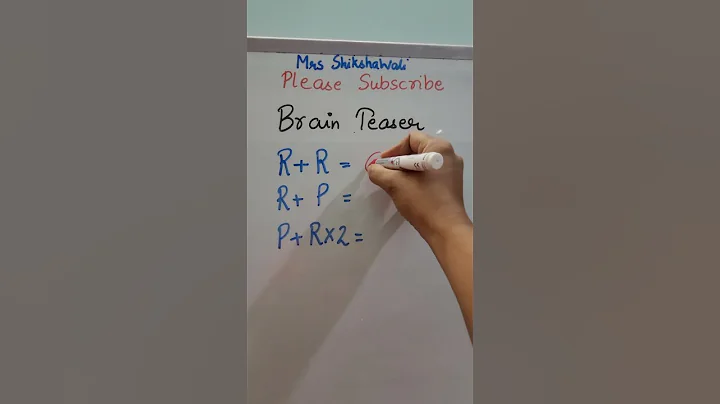 Mrs Shikshawali
Please Subscribe
Brain Teaser
R+R =
R+ P =
P+R×2=